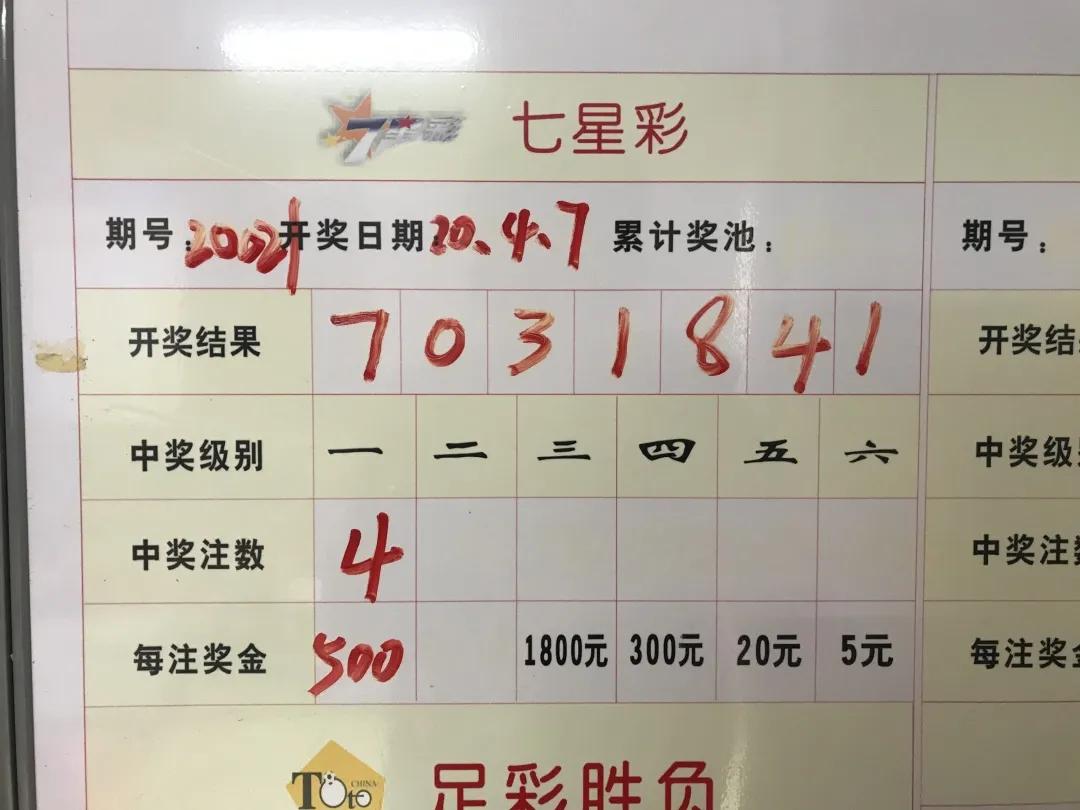 七星彩
期号：20021 开奖日期：20.4.7 累计奖池：
期号：
开奖结果 7 0 3 1 8 4 1
开奖结
中奖级别 一 二 三 四 五 六
中奖级
中奖注数 4
中奖注
每注奖金 500 1800元 300元 20元 5元
每注奖
CHINA
Toto
足彩胜负